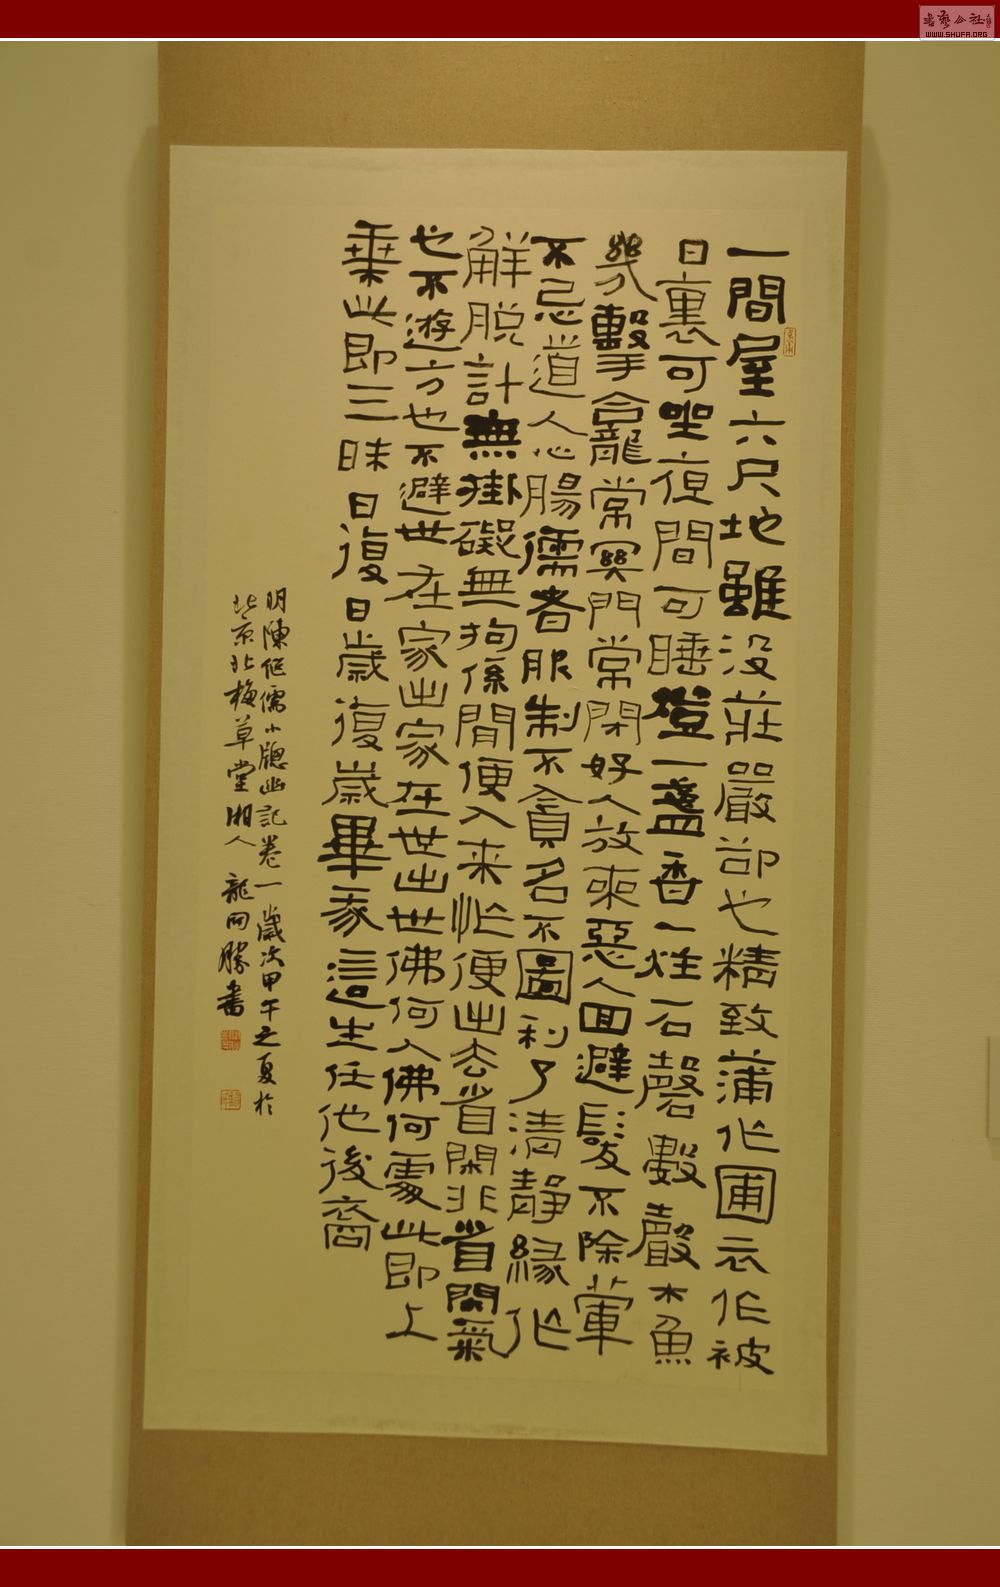 一間屋六尺地雖没莊嚴卻也精致蒲作團衣作被
日裏可坐夜間可睡燈一盞香一炷石磬數聲木魚
幾擊手合龍常冥門常閉好人放來惡人回避髮不除葷
不忌道人心腸儒者服制不貪名不圖利了清靜緣作
解脱計無掛礙無拘係閒便入来忙便出去省閑非省閑氣
也不遊方也不避世在家出家在世出世佛何人佛何處此即上
乘此即三昧日復日歲復歲畢我這生任他後裔
明陳繼儒小牕幽記卷一歲次甲午之夏於
北京北梅草堂湘人龍開勝書
書藝公社
WWW.SHUFA.ORG